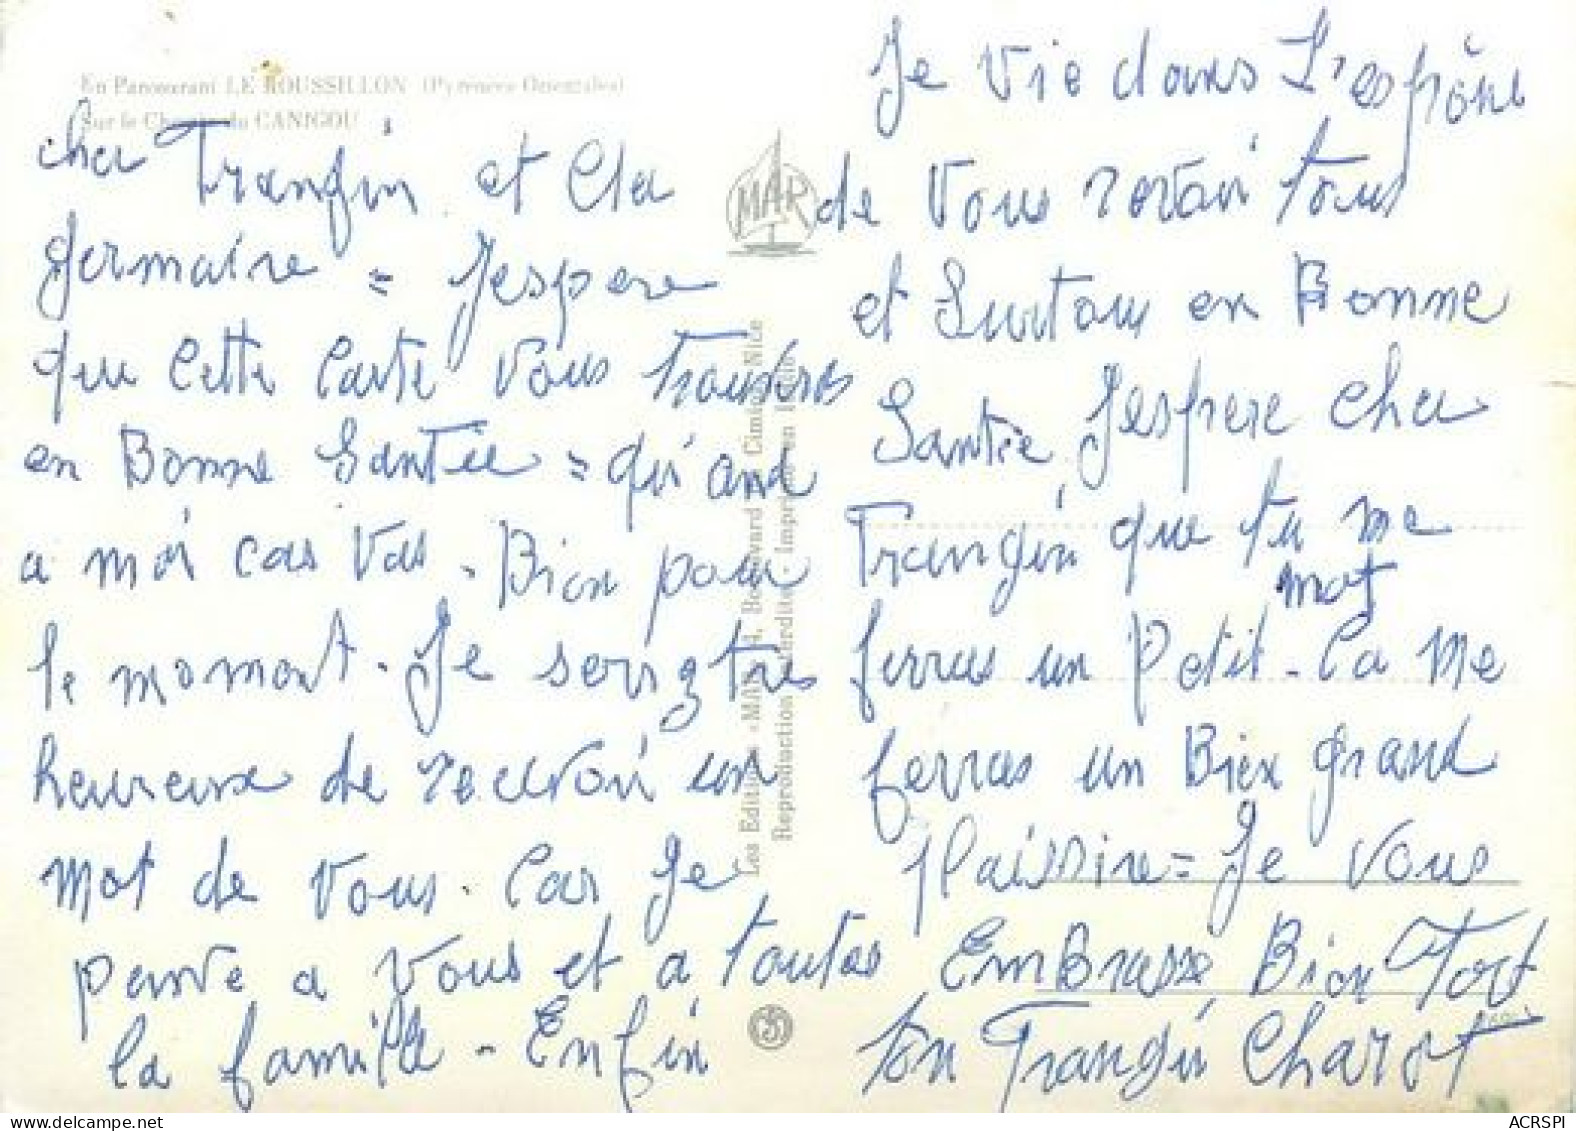 En Parcourant LE ROUSSILLON (Pyrénées Orientales)
Sur le Chemin du CANIGOU
cher Frangin et Cla
germaine = Jespere
que Cette Carte Vous trouveras
en Bonne Santée = qu'and
a moi cas Vas - Bien pour
le moment. Je serez très
heureuse de recevoir un
mot de Vous. Car Je
pense a Vous et a toutes
la famille - Enfin
Je Vie dans L'espéranse
de Vous revoir tous
et Surtous en Bonne
Santée, Jespere cher
Frangin que tu me
ferras un Petit mot - Ca Me
ferras un Bien grand
plaissire = Je Vous
EmBrasse Bien Fort
ton Frangin Charlot
MAR
Les Editions «MAR», Boulevard Cimiez, Nice
Reproduction interdite. Imprimé en Italie
ACRSPI